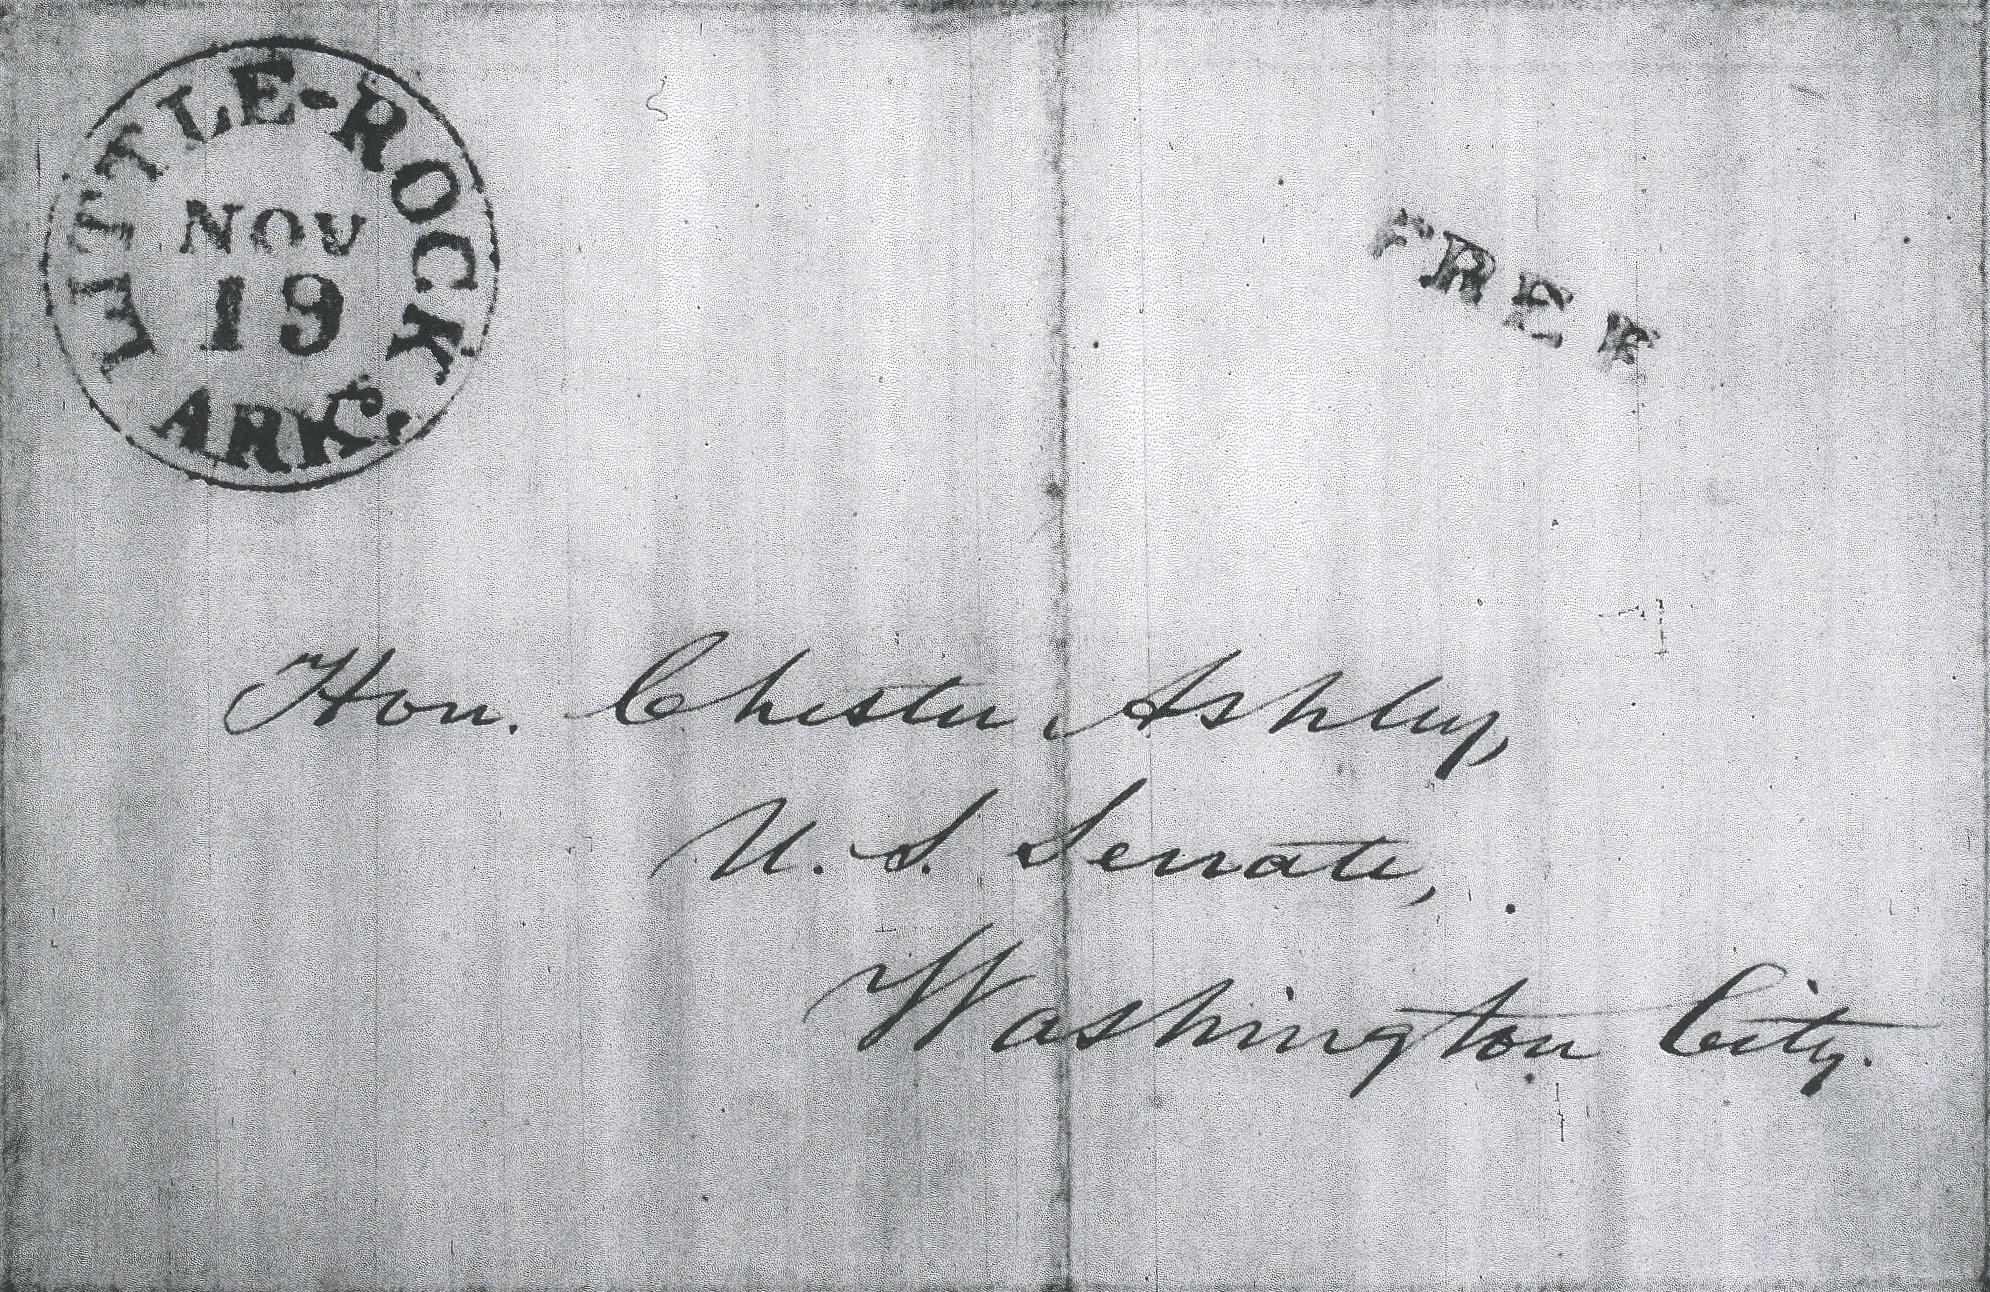 LITTLE-ROCK
NOV
19
ARKS.
FREE
Hon. Chester Ashley,
U. S. Senate,
Washington City.